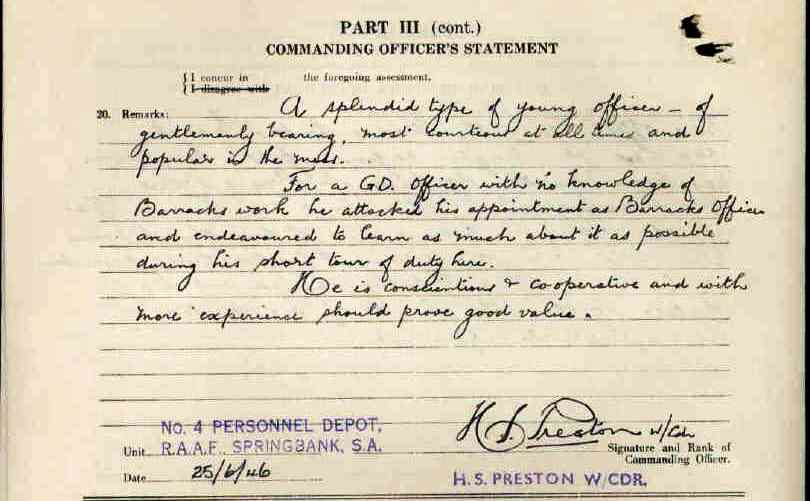 PART III (cont.)
COMMANDING OFFICER'S STATEMENT
{ I concur in
{ I disagree with the foregoing assessment.
20. Remarks: A splendid type of young officer – of
gentlemanly bearing, most courteous at all times and
popular in the mess.
For a G.D. Officer with no knowledge of
Barracks work he attacked his appointment as Barracks Officer
and endeavoured to learn as much about it as possible
during his short tour of duty here.
He is conscientious & co-operative and with
more experience should prove good value.
No. 4 PERSONNEL DEPOT,
Unit R.A.A.F. SPRINGBANK, S.A.
Date 25/6/46
H. S. Preston W/Cdr
Signature and Rank of
Commanding Officer.
H.S. PRESTON W/CDR.